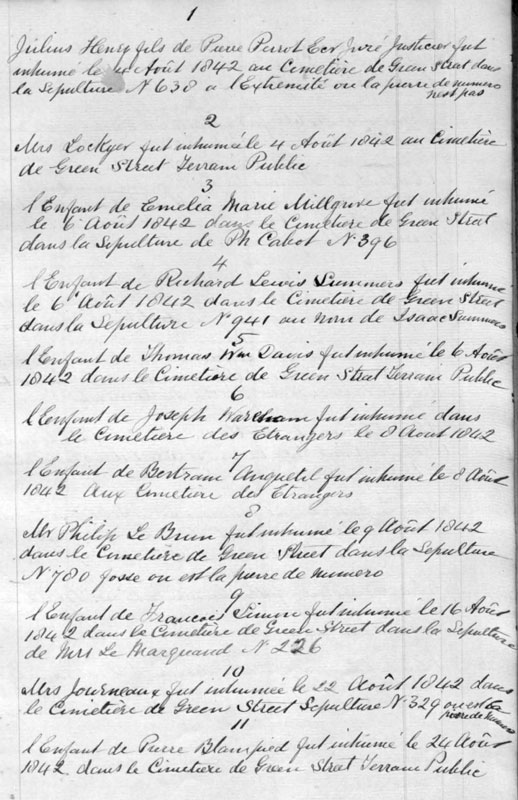 1
Julius Henry fils de Pierre Perrot Ecr Juré Justicier fut
inhumé le 4 Août 1842 au Cimetière de Green Strat dans
la Sepulture N 638 a l'Extremité ou la pierre de numero
n'est pas
2
Mrs Lockyer fut inhumée le 4 Août 1842 au Cimetière
de Green Street Terrain Public
3
l'Enfant de Emelia Marie Millgrove fut inhumé
le 6 Août 1842 dans le Cimetiere de Green Strat
dans la Sepulture de Ph Cabot N 396
4
l'Enfant de Richard Lewis Summers fut inhumé
le 6 Août 1842 dans le Cimetiere de Green Strat
dans la Sepulture N 941 au nom de Isaac Summers
5
l'Enfant de Thomas Wm Davis fut inhumé le 6 Août
1842 dans le Cimetière de Green Strat Terrain Public
6
l'Enfant de Joseph Wareham fut inhumé dans
le Cimetiere des Etrangers le 8 Aout 1842
7
l'Enfant de Bertram Anquetil fut inhumé le 8 Août
1842 Aux Cimetiere des Etrangers
8
Mr Philip Le Brun fut inhumé le 9 Août 1842
dans le Cimetière de Green Street dans la Sepulture
N 780 fosse ou est la pierre de numero
9
l'Enfant de Francois Simon fut inhumé le 16 Août
1842 dans le Cimetière de Green Street dans la Sepulture
de Mrs Le Marquand N 226
10
Mrs Journeaux fut inhumée le 22 Août 1842 dans
le Cimetière de Green Street Sepulture N 329 ou est la
pierre de numero
11
l'Enfant de Pierre Blampied fut inhumé le 24 Août
1842 dans le Cimetière de Green Strat Terrain Public